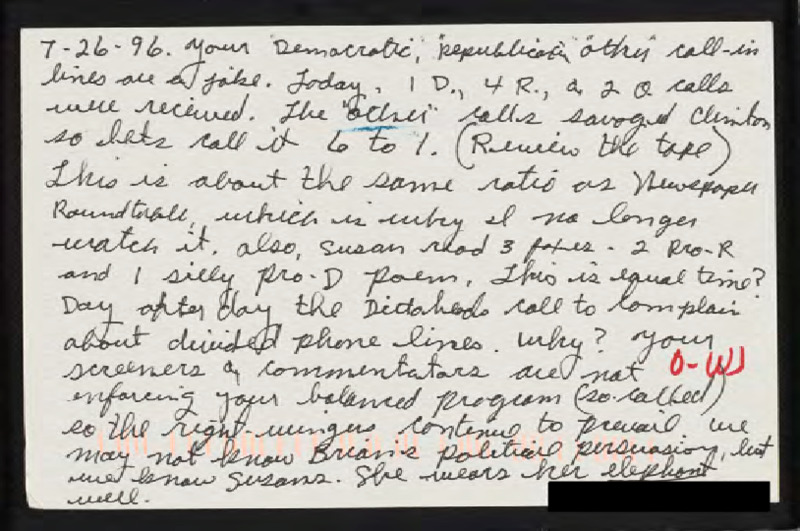 7-26-96. Your "Democratic," "republican," "other" call-in
lines are a joke. Today, 1 D., 4 R., & 2 O calls
were received. The "other" calls savaged Clinton
so lets call it 6 to 1. (Review the tape)
This is about the same ratio as Newspaper
Roundtable, which is why I no longer
watch it. Also, Susan read 3 faxes - 2 Pro-R
and 1 silly pro-D poem. This is equal time?
Day after day the Dittoheads call to complain
about divided phone lines. Why? Your
screeners & commentators are not
O-W
enforcing your balanced program (so-called)
so the right-wingers continue to prevail. We
may not know Brian's political persuasion, but
we know Susans. She wears her elephant
well.